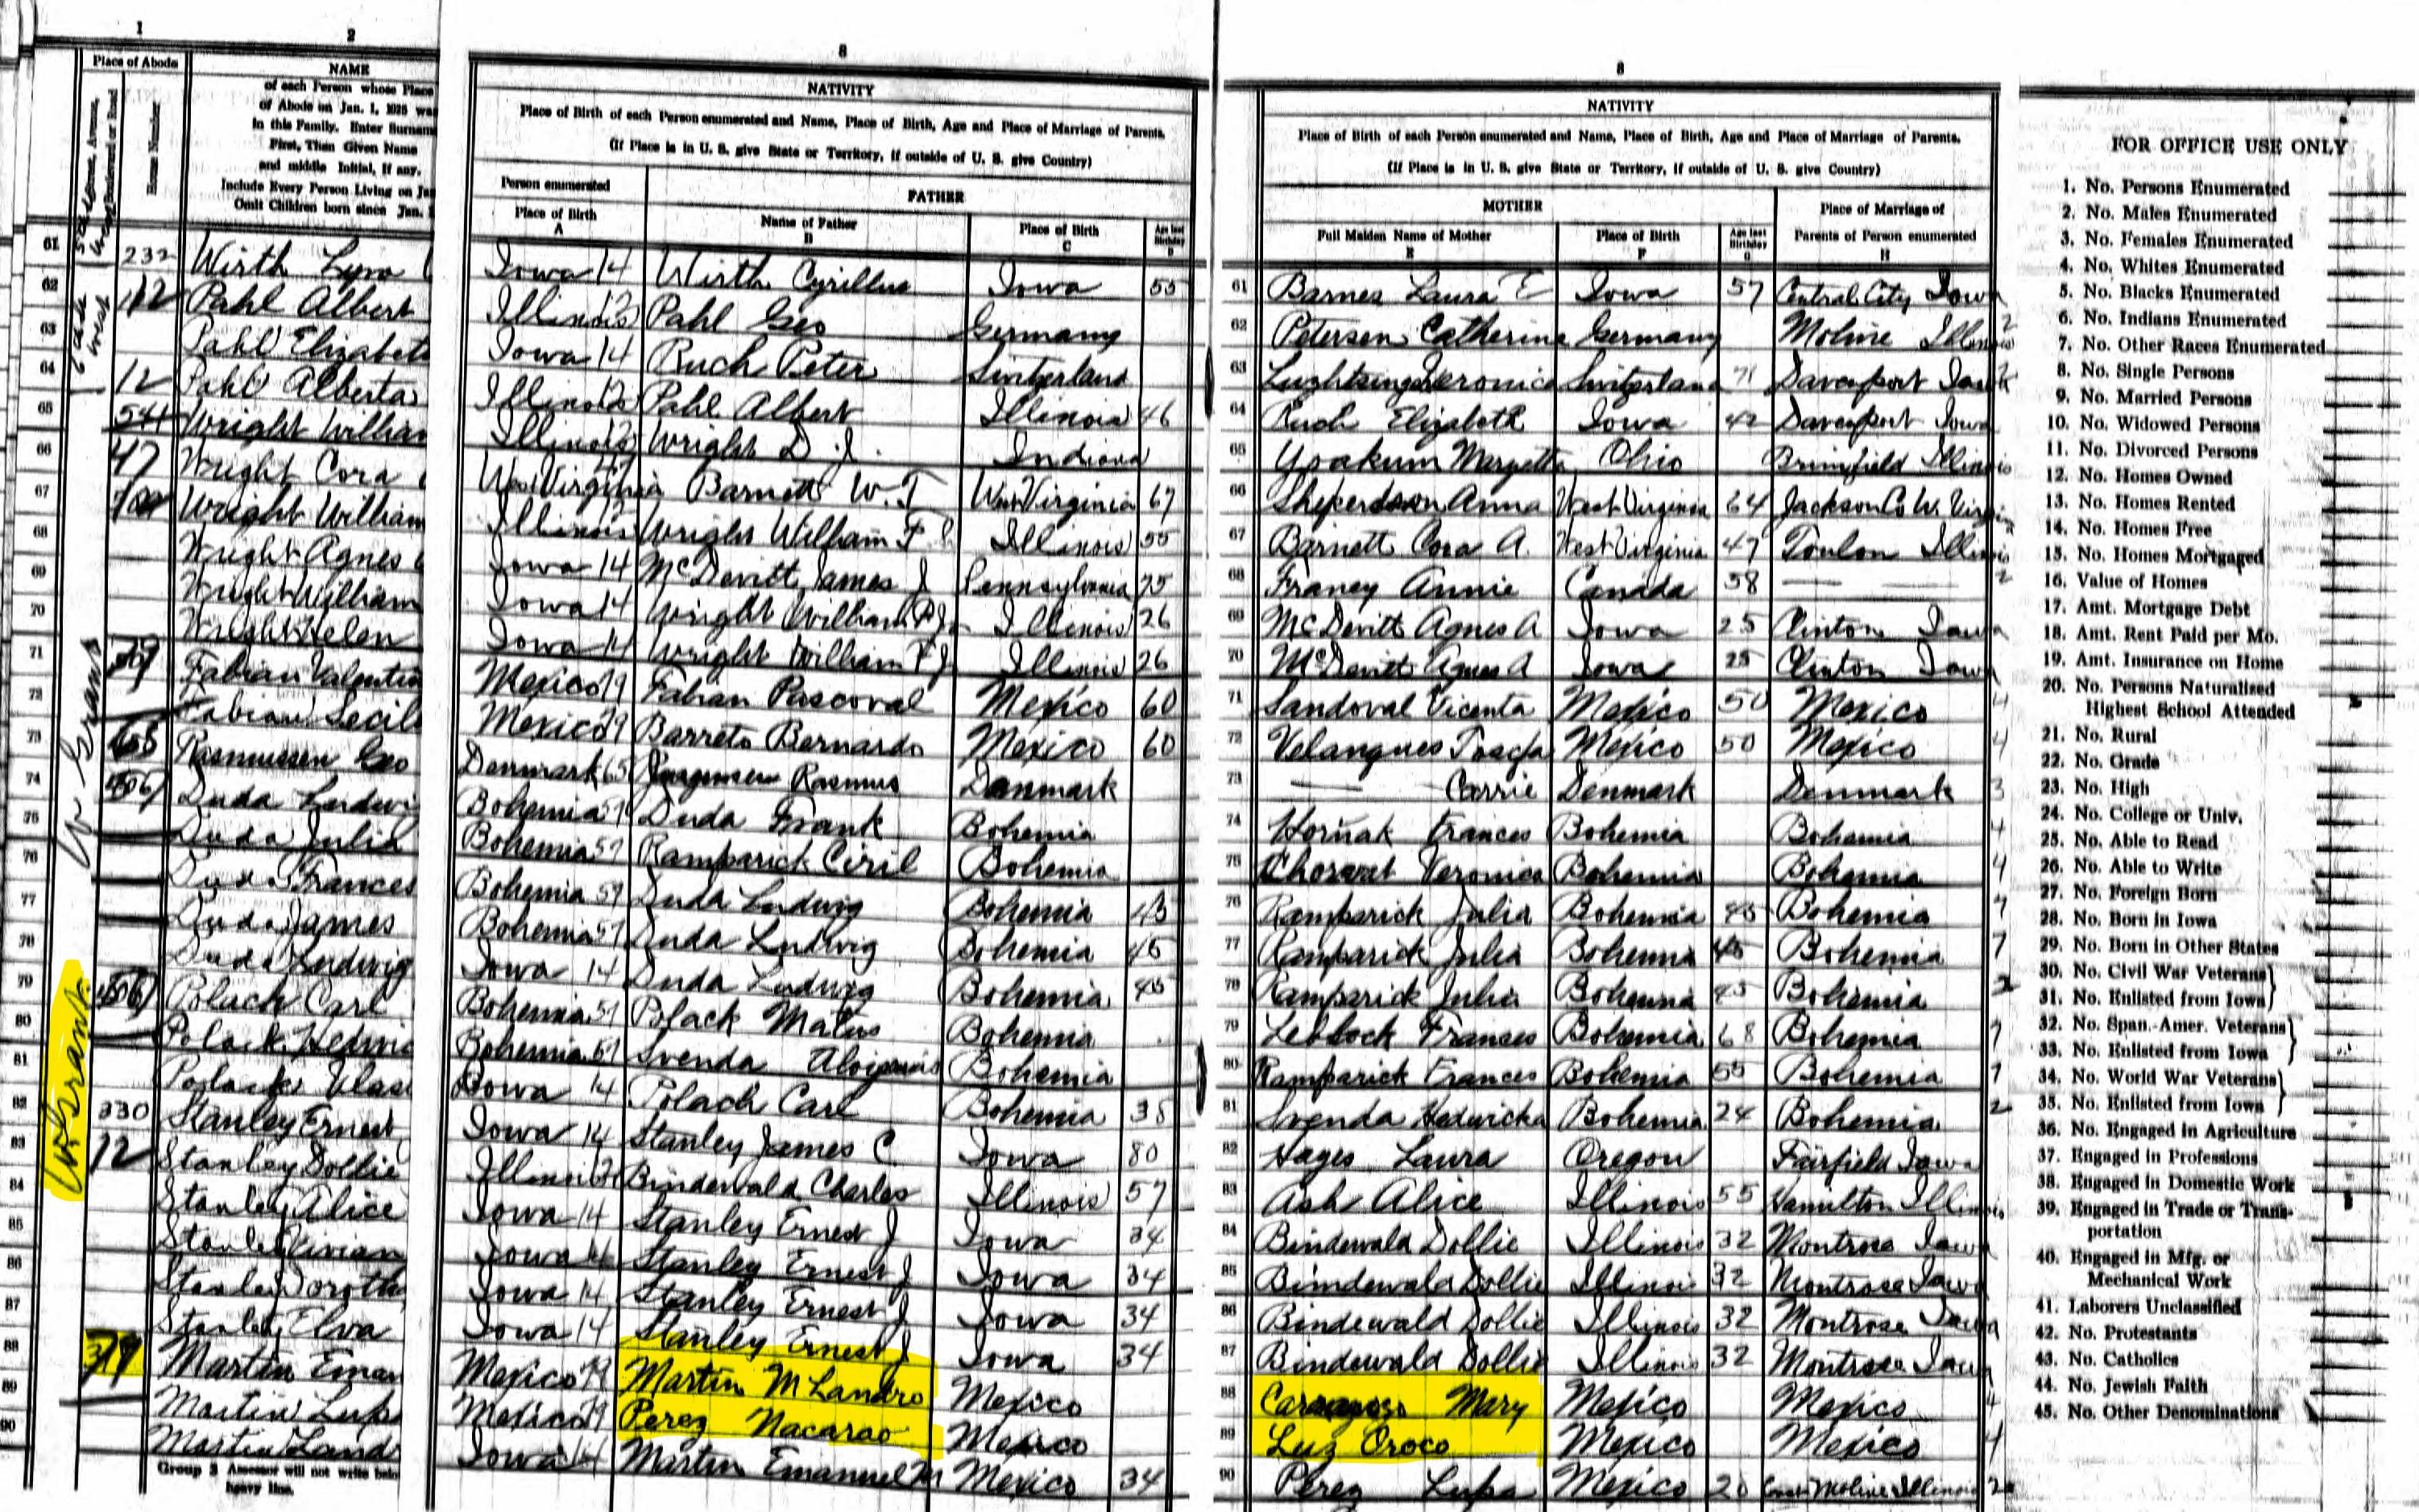 1
2
Place of Abode
Home Number
NAME
of each Person whose Place
of Abode on Jan. 1, 1925 was
in this Family. Enter Surname
First, Then Given Name
and middle Initial, if any.
Include Every Person Living on Jan
Omit Children born since Jan.
8
NATIVITY
Place of Birth of each Person enumerated and Name, Place of Birth, Age and Place of Marriage of Parents.
(If Place is in U. S. give State or Territory, if outside of U. S. give Country)
Person enumerated
FATHER
Place of Birth
A
Name of Father
B
Place of Birth
C
Age last
Birthday
D
8
NATIVITY
Place of Birth of each Person enumerated and Name, Place of Birth, Age and Place of Marriage of Parents.
(If Place is in U. S. give State or Territory, if outside of U. S. give Country)
MOTHER
Full Maiden Name of Mother
E
Place of Birth
F
Age last
Birthday
G
Place of Marriage of
Parents of Person enumerated
H
61 232 Wirth Lyra Iowa 14 Wirth Cyrillus Iowa 55 61 Barnes Laura E Iowa 57 Central City Iowa
62 112 Pahl Albert Illinois 12 Pahl Geo Germany 62 Petersen Catherine Germany Moline Illinois
63 Pahl Elizabeth Iowa 14 Ruch Peter Switzerland 63 Switzerland 71 Davenport Iowa
64 12 Pahl Alberta Illinois 12 Pahl Albert Illinois 46 64 Ruch Elizabeth Iowa 42 Davenport Iowa
65 Wright William Illinois 12 Wright D. J. Indiana 65 Yoakum Margetta Ohio Brimfield Illinois
66 47 Wright Cora West Virginia Barnett W. T West Virginia 67 66 Anna West Virginia 64 Jackson Co W. Virginia
67 Wright William Illinois Wright William F Illinois 55 67 Barnett Cora A. West Virginia 47 Toulon Illinois
68 Wright Agnes Iowa 14 McDevitt James J Pennsylvania 75 68 Franey Annie Canada 58 — —
69 Wright William Iowa 14 Wright William F Jr Illinois 26 69 McDevitt Agnes A Iowa 25 Clinton Iowa
70 Wright Helen Iowa 14 Wright William F Jr Illinois 26 70 McDevitt Agnes A Iowa 25 Clinton Iowa
71 Fabian Valentin Mexico 79 Fabian Pascoval Mexico 60 71 Sandoval Vicenta Mexico 50 Mexico 4
72 Fabian Mexico 79 Barreto Bernardo Mexico 60 72 Velangues Mexico 50 Mexico 4
73 Rasmussen Geo Denmark 65 Rasmus Danmark 73 — Carrie Denmark Denmark 3
74 Duda Ludwi Bohemia 57 Duda Frank Bohemia 74 Hornak Frances Bohemia Bohemia 4
75 Duda Julia Bohemia 57 Ramparick Ciril Bohemia 75 Veronica Bohemia Bohemia 4
76 Duda Frances Bohemia 57 Duda Ludwig Bohemia 45 76 Ramparick Julia Bohemia 45 Bohemia 7
77 Duda James Bohemia 57 Duda Ludwig Bohemia 45 77 Ramparick Julia Bohemia 45 Bohemia 7
78 Duda Ludwig Iowa 14 Duda Ludwig Bohemia 45 78 Ramparick Julia Bohemia 45 Bohemia 2
79 Polach Carl Bohemia 57 Polach Bohemia 79 Frances Bohemia 68 Bohemia 7
80 Polack Hedwic Bohemia 57 Svenda Bohemia 80 Ramparick Frances Bohemia 55 Bohemia 7
81 Polack Vlas Iowa 14 Polach Carl Bohemia 38 81 Svenda Hedwicka Bohemia 24 Bohemia 2
82 330 Stanley Ernest Iowa 14 Stanley James C Iowa 80 82 Hayes Laura Oregon Fairfield Iowa
83 12 Stanley Dollie Illinois Bindewald Charles Illinois 57 83 Ash Alice Illinois 55 Hamilton Illinois
84 Stanley Alice Iowa 14 Stanley Ernest J Iowa 34 84 Bindewald Dollie Illinois 32 Montrose Iowa
85 Stanley Vivian Iowa 14 Stanley Ernest J Iowa 34 85 Bindewald Dollie Illinois 32 Montrose Iowa
86 Stanley Doroth Iowa 14 Stanley Ernest J Iowa 34 86 Bindewald Dollie Illinois 32 Montrose Iowa
87 Stanley Elva Iowa 14 Stanley Ernest J Iowa 34 87 Bindewald Dollie Illinois 32 Montrose Iowa
88 319 Martin Eman Mexico 79 Martin M Landro Mexico 88 Mary Mexico Mexico 4
89 Martin Lupe Mexico 79 Perez Nacarao Mexico 89 Luz Oroco Mexico Mexico 4
90 Martin Land Iowa 14 Martin Emanuel M Mexico 34 90 Perez Lupa Mexico 20 Moline Illinois
W Grant
W Grant
Group 3 Assessor will not write below
heavy line.
FOR OFFICE USE ONLY
1. No. Persons Enumerated
2. No. Males Enumerated
3. No. Females Enumerated
4. No. Whites Enumerated
5. No. Blacks Enumerated
6. No. Indians Enumerated
7. No. Other Races Enumerated
8. No. Single Persons
9. No. Married Persons
10. No. Widowed Persons
11. No. Divorced Persons
12. No. Homes Owned
13. No. Homes Rented
14. No. Homes Free
15. No. Homes Mortgaged
16. Value of Homes
17. Amt. Mortgage Debt
18. Amt. Rent Paid per Mo.
19. Amt. Insurance on Home
20. No. Persons Naturalized
Highest School Attended
21. No. Rural
22. No. Grade
23. No. High
24. No. College or Univ.
25. No. Able to Read
26. No. Able to Write
27. No. Foreign Born
28. No. Born in Iowa
29. No. Born in Other States
30. No. Civil War Veterans
31. No. Enlisted from Iowa
32. No. Span.-Amer. Veterans
33. No. Enlisted from Iowa
34. No. World War Veterans
35. No. Enlisted from Iowa
36. No. Engaged in Agriculture
37. Engaged in Professions
38. Engaged in Domestic Work
39. Engaged in Trade or Trans-
portation
40. Engaged in Mfg. or
Mechanical Work
41. Laborers Unclassified
42. No. Protestants
43. No. Catholics
44. No. Jewish Faith
45. No. Other Denominations